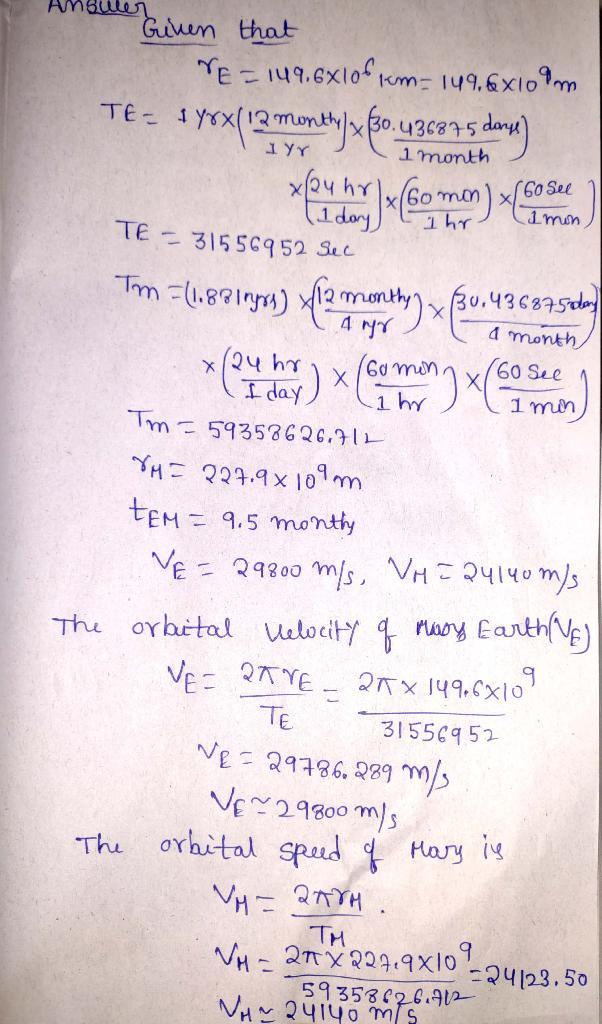 Answer
Given that
rE = 149.6x10⁶ km = 149.6x10⁹m
TE = 1 yrx(12 month/1 yr)x(30.436875 days/1 month)
x(24 hr/1 day)x(60 min/1 hr)x(60 sec/1 min)
TE = 31556952 sec
Tm =(1.881yrs)x(12 month/1 yr)x(30.436875day/1 month)
x(24 hr/1 day)x(60 min/1 hr)x(60 sec/1 min)
Tm = 59358626.712
rM = 227.9x10⁹m
tEM = 9.5 month
VE = 29800 m/s, VM = 24140m/s
The orbital velocity of Earth(VE)
VE = 2πrE/TE = 2πx149.6x10⁹/31556952
VE = 29786.289 m/s
VE ≃ 29800 m/s
The orbital speed of Mars is
VM = 2πrM/TM .
VM = 2πx227.9x10⁹/59358626.712 = 24123.50
VM ≃ 24140 m/s